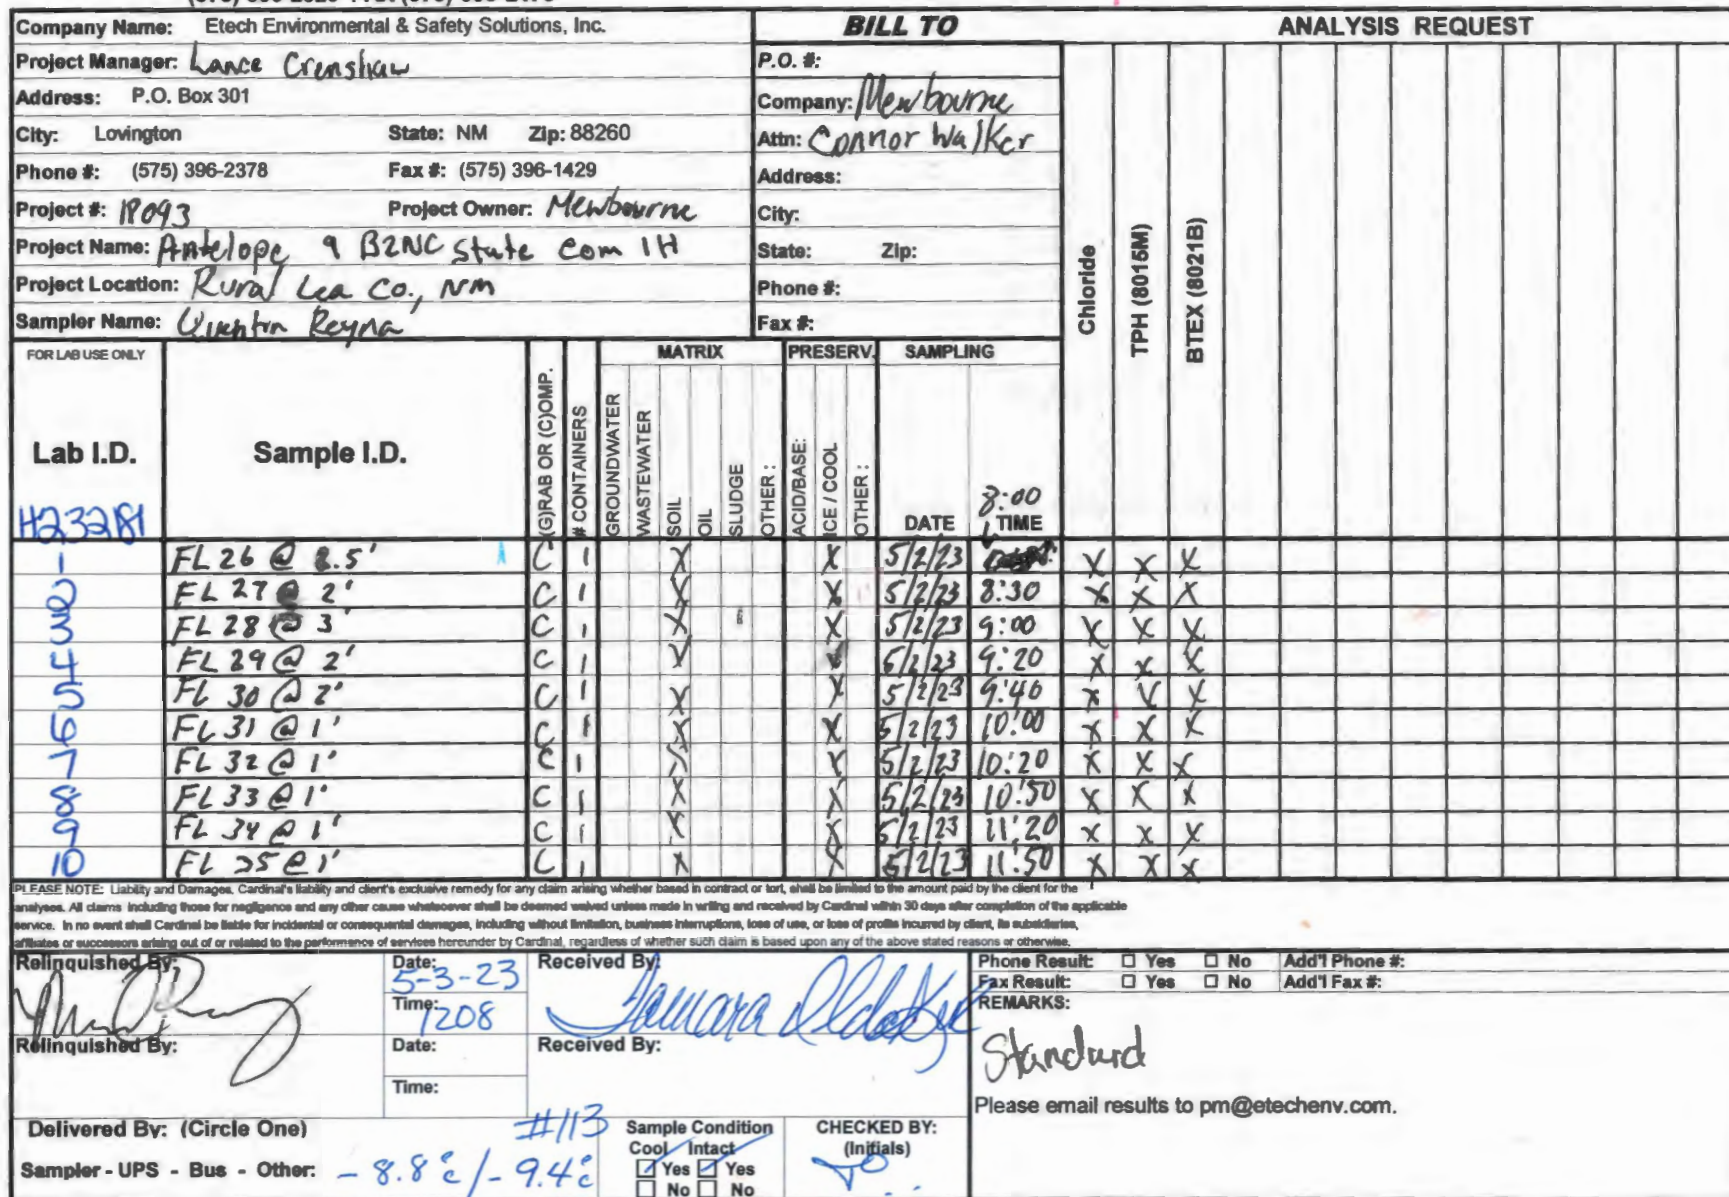 Company Name: Etech Environmental & Safety Solutions, Inc.
BILL TO
ANALYSIS REQUEST
Project Manager: Lance Crenshaw
P.O. #:
Address: P.O. Box 301
Company: Mewbourne
City: Lovington State: NM Zip: 88260
Attn: Connor Walker
Phone #: (575) 396-2378 Fax #: (575) 396-1429
Address:
Project #: 18093 Project Owner: Mewbourne
City:
Project Name: Antelope 9 B2NC State Com 1H
State: Zip:
Project Location: Rural Lea Co., NM
Phone #:
Sampler Name: Quentin Reyna
Fax #:
Chloride
TPH (8015M)
BTEX (8021B)
FOR LAB USE ONLY
MATRIX PRESERV. SAMPLING
Lab I.D.
H232181
Sample I.D.
(G)RAB OR (C)OMP.
# CONTAINERS
GROUNDWATER
WASTEWATER
SOIL
OIL
SLUDGE
OTHER :
ACID/BASE:
ICE / COOL
OTHER :
DATE
8:00
TIME
1 FL 26 @ .5' C 1 X X 5/2/23 X X X
2 FL 27 @ 2' C 1 X X 5/2/23 8:30 X X X
3 FL 28 @ 3' C 1 X X 5/2/23 9:00 X X X
4 FL 29 @ 2' C 1 X X 5/2/23 9:20 X X X
5 FL 30 @ 2' C 1 X X 5/2/23 9:40 X X X
6 FL 31 @ 1' C 1 X X 5/2/23 10:00 X X X
7 FL 32 @ 1' C 1 X X 5/2/23 10:20 X X X
8 FL 33 @ 1' C 1 X X 5/2/23 10:50 X X X
9 FL 34 @ 1' C 1 X X 5/2/23 11:20 X X X
10 FL 35 @ 1' C 1 X X 5/2/23 11:50 X X X
PLEASE NOTE: Liability and Damages. Cardinal's liability and client's exclusive remedy for any claim arising whether based in contract or tort, shall be limited to the amount paid by the client for the
analyses. All claims including those for negligence and any other cause whatsoever shall be deemed waived unless made in writing and received by Cardinal within 30 days after completion of the applicable
service. In no event shall Cardinal be liable for incidental or consequental damages, including without limitation, business interruptions, loss of use, or loss of profits incurred by client, its subsidiaries,
affiliates or successors arising out of or related to the performance of services hereunder by Cardinal, regardless of whether such claim is based upon any of the above stated reasons or otherwise.
Relinquished By:
Date: 5-3-23
Time: 1208
Received By: Tamara
Phone Result: Yes No Add'l Phone #:
Fax Result: Yes No Add'l Fax #:
REMARKS:
Standard
Please email results to pm@etechenv.com.
Relinquished By:
Date:
Time:
Received By:
Delivered By: (Circle One)
Sampler - UPS - Bus - Other: -8.8°c / -9.4°c
#113
Sample Condition
Cool Intact
Yes Yes
No No
CHECKED BY:
(Initials)